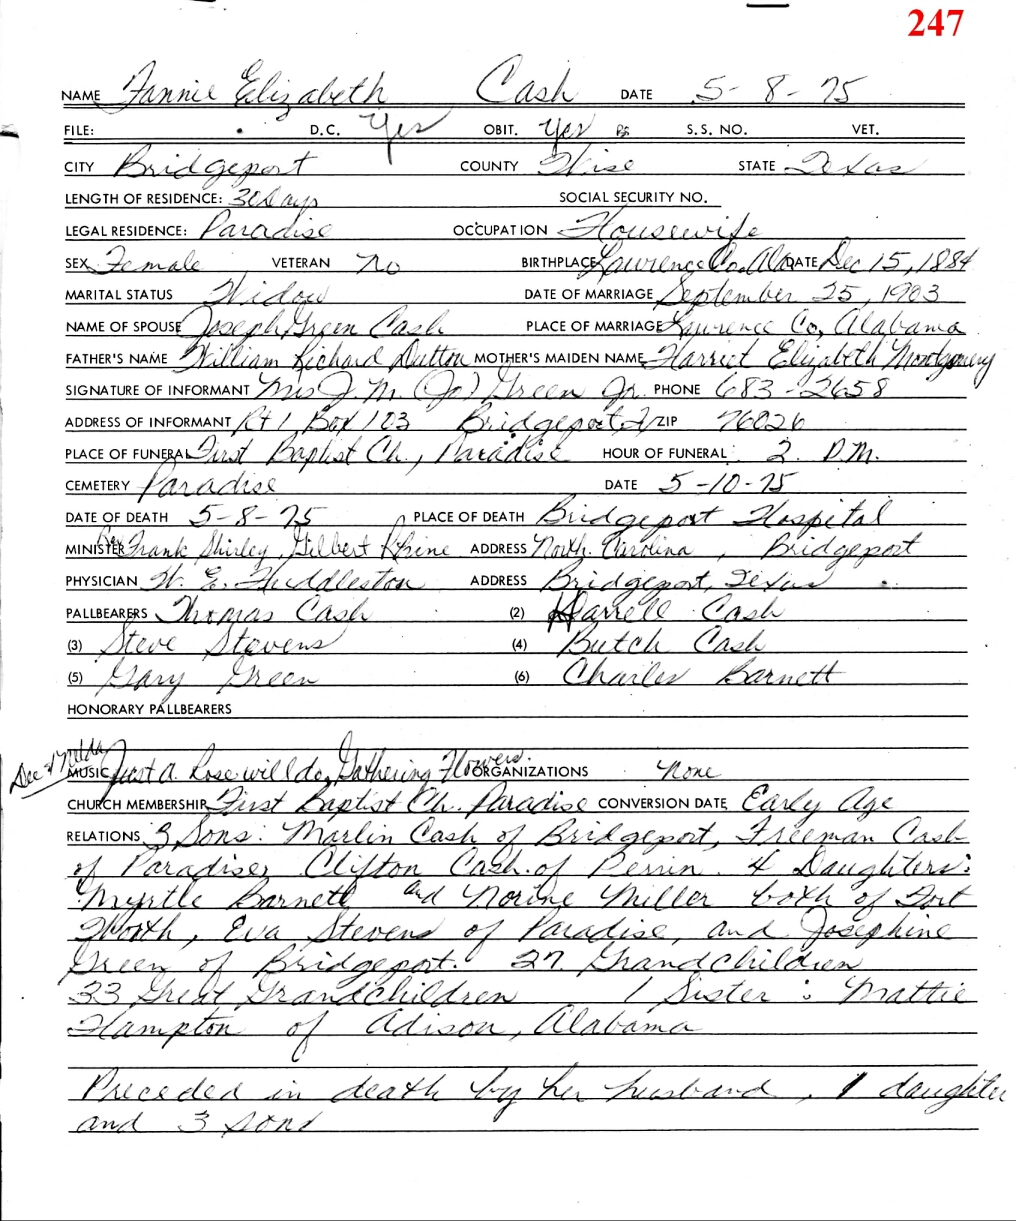 247
NAME Fannie Elizabeth Cash DATE 5-8-75
FILE: D.C. Yes OBIT. Yes S.S. NO. VET.
CITY Bridgeport COUNTY Wise STATE Texas
LENGTH OF RESIDENCE: 30 Days SOCIAL SECURITY NO.
LEGAL RESIDENCE: Paradise OCCUPATION Housewife
SEX Female VETERAN No BIRTHPLACE Lawrence Co. Ala DATE Dec 15, 1884
MARITAL STATUS Widow DATE OF MARRIAGE September 25, 1903
NAME OF SPOUSE Joseph Green Cash PLACE OF MARRIAGE Lawrence Co, Alabama
FATHER'S NAME William Richard Dutton MOTHER'S MAIDEN NAME Harriet Elizabeth Montgomery
SIGNATURE OF INFORMANT Mrs J. M. (Jo) Green Jr. PHONE 683-2658
ADDRESS OF INFORMANT Rt 1, Box 103 Bridgeport, ZIP 76026
PLACE OF FUNERAL First Baptist Ch., Paradise HOUR OF FUNERAL 2 P.M.
CEMETERY Paradise DATE 5-10-75
DATE OF DEATH 5-8-75 PLACE OF DEATH Bridgeport Hospital
MINISTER Rev Frank Shirley, Gilbert Rhine ADDRESS North Carolina, Bridgeport
PHYSICIAN W. E. Huddleston ADDRESS Bridgeport, Texas
PALLBEARERS Thomas Cash (2) Darrell Cash
(3) Steve Stevens (4) Butch Cash
(5) Gary Green (6) Charles Barnett
HONORARY PALLBEARERS
MUSIC Just a Rose will do, Gathering Flowers ORGANIZATIONS None
CHURCH MEMBERSHIP First Baptist Ch. Paradise CONVERSION DATE Early Age
RELATIONS 3 Sons: Marlin Cash of Bridgeport, Freeman Cash
of Paradise, Clifton Cash of Perrin. 4 Daughters:
Myrtle Barnett and Norine Miller both of Fort
Worth, Eva Stevens of Paradise, and Josephine
Green of Bridgeport. 27 Grandchildren
33 Great Grandchildren 1 Sister: Mattie
Hampton of Adison, Alabama
Preceded in death by her husband, 1 daughter
and 3 sons